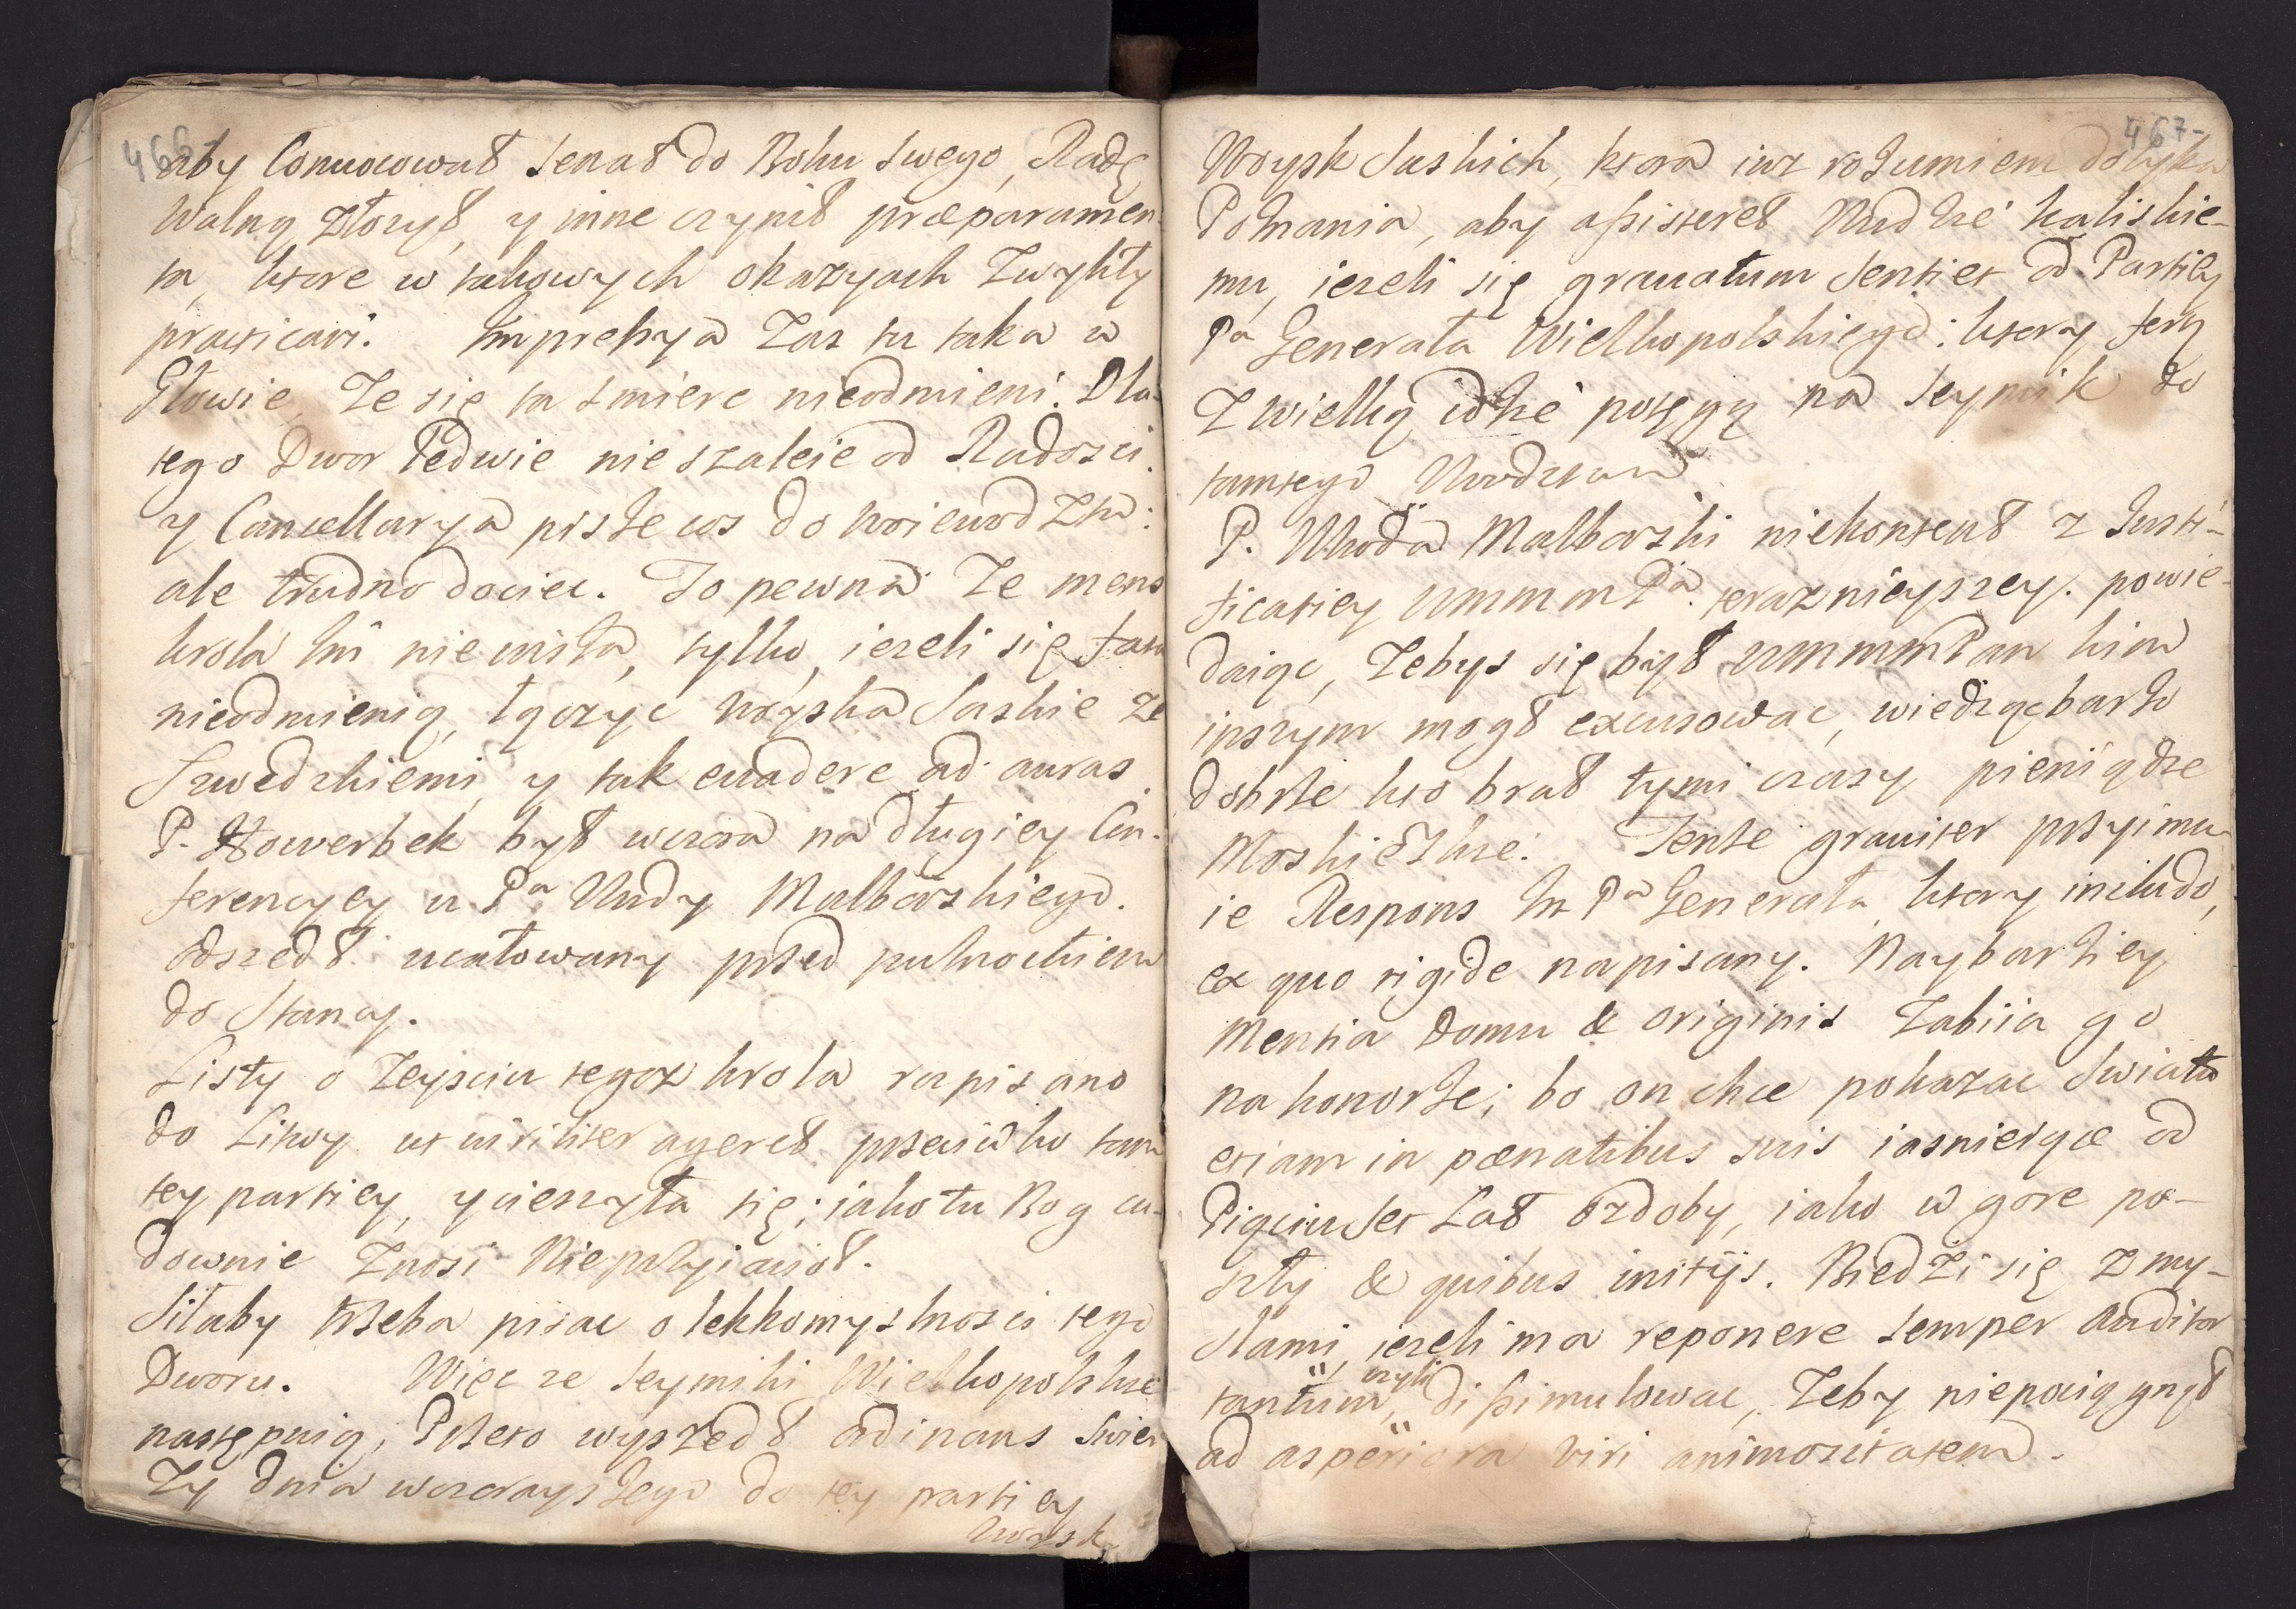 466
aby Conuocował Senat do Boku swego, Radę
Walną złozył, y inne czynił præparamen-
ta, ktore w takowych okazyach zwykły
practicari. Impressya zas tu taka w
Głowie, Ze się ta smierc nieodmieni. Dla-
tego Dwor ledwie nie szaleie od Radosci.
y Cancellarya pisze cos do woiewodztw:
ale trudno dociec. To pewna Ze mens
krola Im nie insza, tylko, iezeli się tam
nieodmienią, łączyc woyska Saskie ze
Szwedzkiemi, y tak euadere ad auras.
P. Howerbek był wczora na długiey Con-
ferencyey u Pa Wdy Malborskiego.
odszedł ucałowany przed pułnockiem
do Stancy.
Listy o Zeysciu tegoz krola rapisano
do Litwy ut uiriliter ageret przeciwko tam
tey partiey, y cieszyła się; iako tu Bog cu-
downie Znosi Nieprzyiacioł.
Siłaby trzeba pisac o lekkomyslnosci tego
Dworu. Więc ze Seymiki Wielkopolskie
następuią, Przeto wyszedł ordinans swie-
zy dnia wczorayszego do tey partiey
woysk
467-
Woysk Saskich, ktora iuz rozumiem dotyka
Poznania, aby assisteret Wdzie kaliskie-
mu, iezeli się grauatum sentiet od Partiey
Pa Generała Wielkopolskiego: ktory tez
Z wielką idzie potęgą na Seymik do
tamtego Wwodztwa
P. Wwoda Malborski niekontent z Justi-
ficatiey WMMMPa. teraznieyszey. powie-
daiąc, Zebys się był WMMMPan kim
inszym mogł excusowac, wiedząc barzo
dobrze kto brał tymi czasy pieniądze
Moskiewskie. Tenze grauiter przyimu-
ie Respons Im Pa Generała, ktory includo,
ex quo rigide napisany. Naybarziey
Mentia Domu & originis Zabiia go
na honorze; bo on chce pokazac swiatu
etiam in pænatibus suis iasnieiące od
Pięciuset Lat ozdoby, iako w gore po-
szły & quibus initijs. Biedzi się z my-
slami, iezeli ma reponere semper auditor
tantum, czyli dissimulowac, Zeby niepociągnął
ad asperiora viri animozitatem.